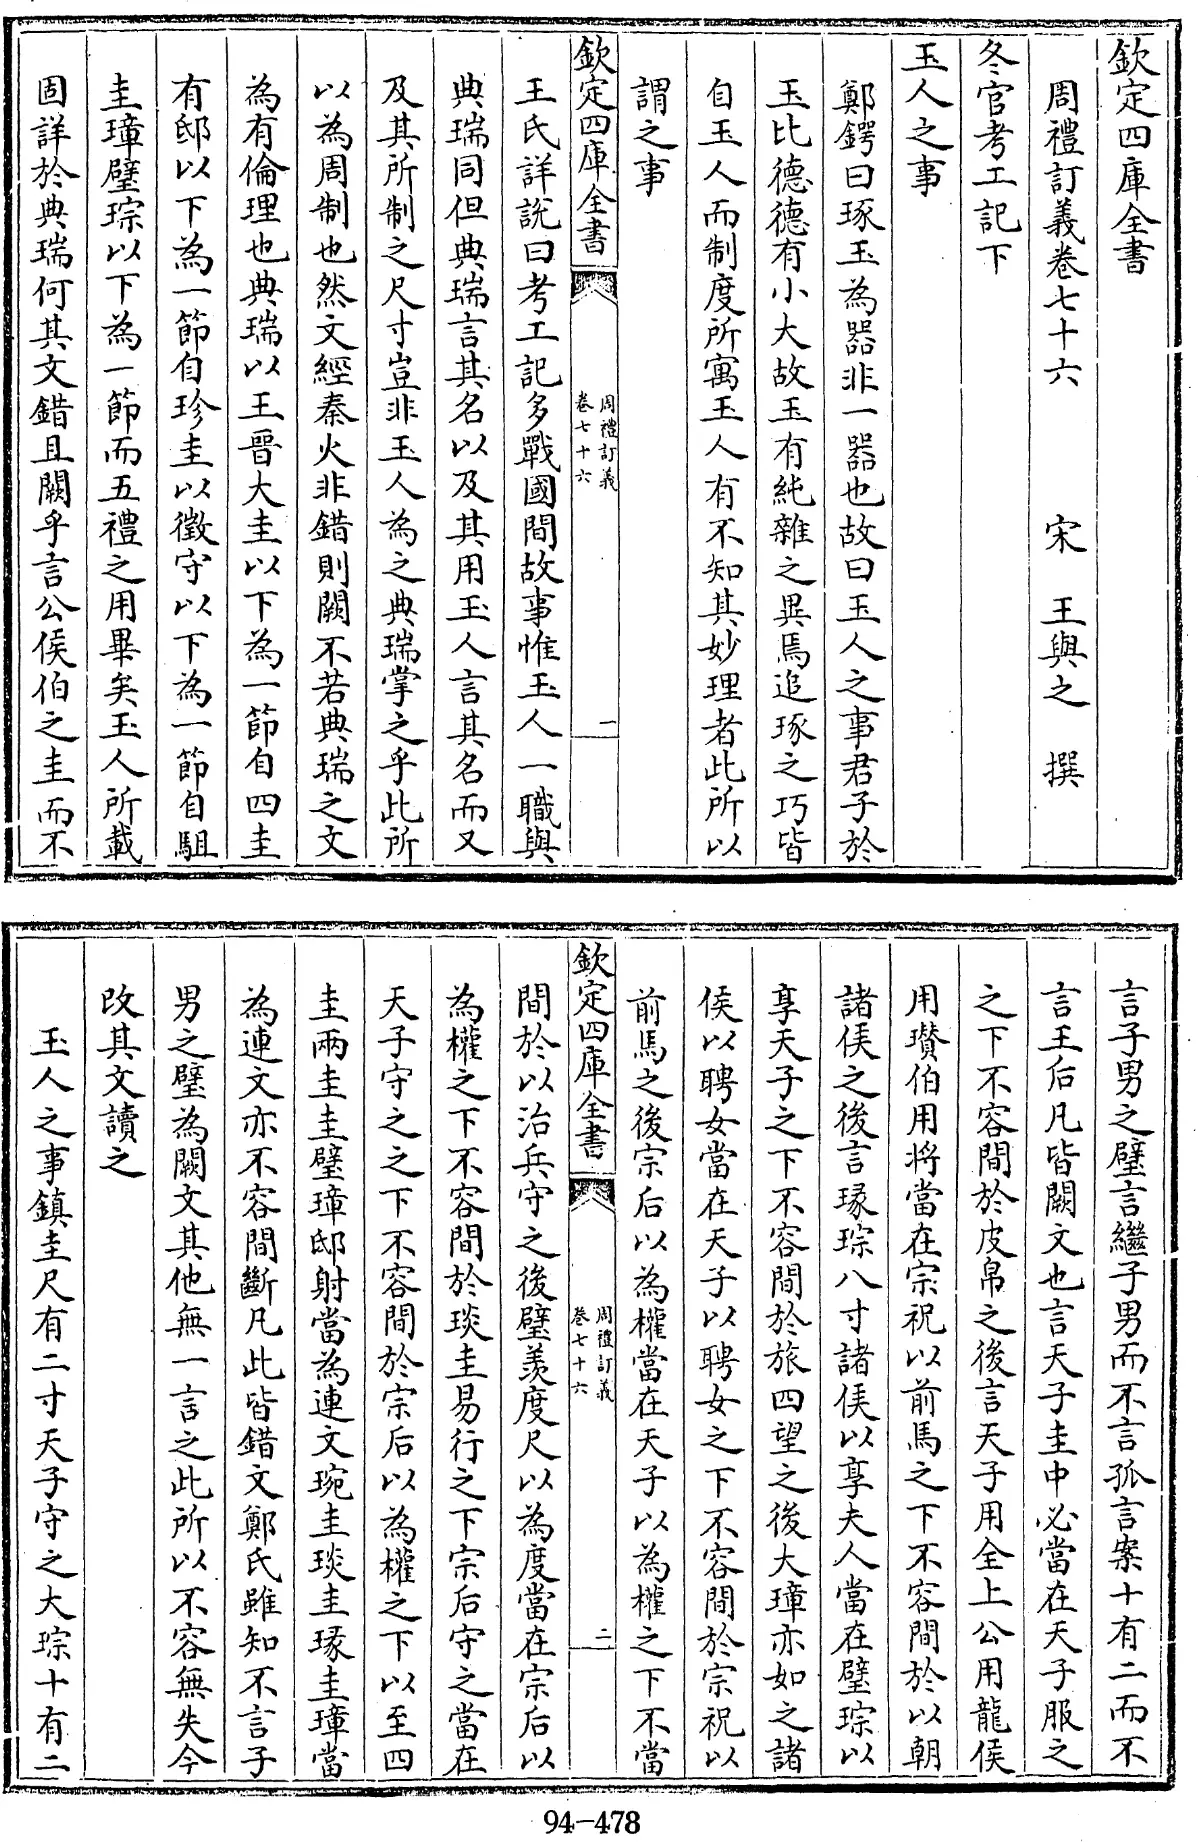 欽定四庫全書
周禮訂義卷七十六 宋 王與之 撰
冬官考工記下
玉人之事
鄭鍔曰琢玉為器非一器也故曰玉人之事君子於
玉比德德有小大故玉有純雜之異焉追琢之巧皆
自玉人而制度所寓玉人有不知其妙理者此所以
謂之事
欽定四庫全書
周禮訂義
卷七十六
一
王氏詳說曰考工記多戰國間故事惟玉人一職與
典瑞同但典瑞言其名以及其用玉人言其名而又
及其所制之尺寸豈非玉人為之典瑞掌之乎此所
以為周制也然文經秦火非錯則闕不若典瑞之文
為有倫理也典瑞以王晉大圭以下為一節自四圭
有邸以下為一節自珍圭以徵守以下為一節自駔
圭璋璧琮以下為一節而五禮之用畢矣玉人所載
固詳於典瑞何其文錯且闕乎言公侯伯之圭而不
言子男之璧言繼子男而不言孤言案十有二而不
言王后凡皆闕文也言天子圭中必當在天子服之
之下不容間於皮帛之後言天子用全上公用龍侯
用瓚伯用將當在宗祝以前馬之下不容間於以朝
諸侯之後言瑑琮八寸諸侯以享夫人當在璧琮以
享天子之下不容間於旅四望之後大璋亦如之諸
侯以聘女當在天子以聘女之下不容間於宗祝以
前馬之後宗后以為權當在天子以為權之下不當
欽定四庫全書
周禮訂義
卷七十六
二
間於以治兵守之後璧羨度尺以為度當在宗后以
為權之下不容間於琰圭易行之下宗后守之當在
天子守之之下不容間於宗后以為權之下以至四
圭兩圭圭璧璋邸射當為連文琬圭琰圭瑑圭璋當
為連文亦不容間斷凡此皆錯文鄭氏雖知不言子
男之璧為闕文其他無一言之此所以不容無失今
改其文讀之
玉人之事鎮圭尺有二寸天子守之大琮十有二
94-478